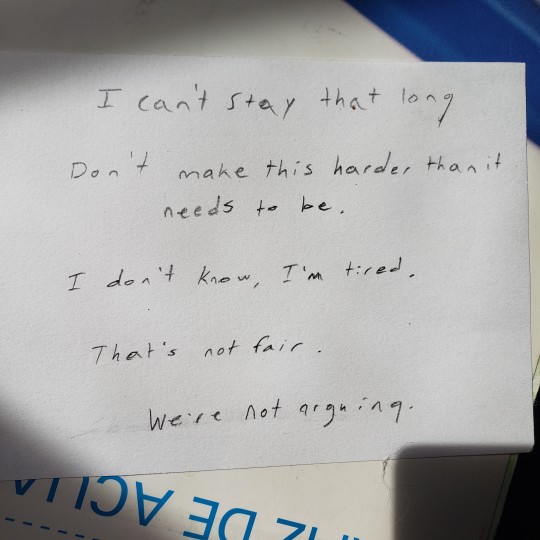 I can't stay that long
Don't make this harder than it
needs to be.
I don't know, I'm tired.
That's not fair.
We're not arguing.
DE AGUA